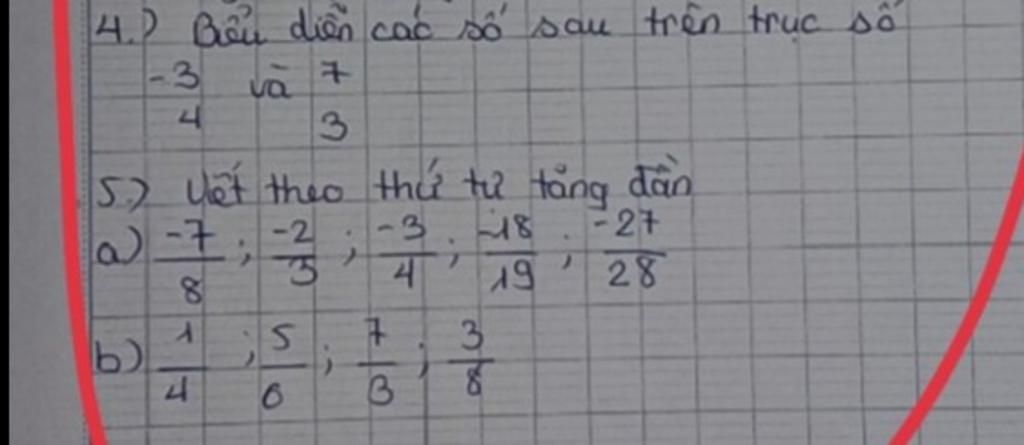 4.) Biểu diễn các số sau trên trục số
-3/4 và 7/3
5.) Viết theo thứ tự tăng dần
a) -7/8 ; -2/3 ; -3/4 ; -18/19 ; -27/28
b) 1/4 ; 5/6 ; 7/3 ; 3/8